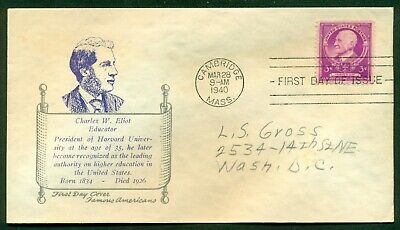 CAMBRIDGE
MAR 28
9-AM
1940
MASS.
FIRST DAY OF ISSUE
UNITED STATES POSTAGE
3¢ 3¢
Charles W. Eliot
Educator
President of Harvard Univer-
sity at the age of 35, he later
became recognized as the leading
authority on higher education in
the United States.
Born 1834 - Died 1926
First Day Cover
Famous Americans
L.S. Gross
2534-14th St NE
Wash, D.C.